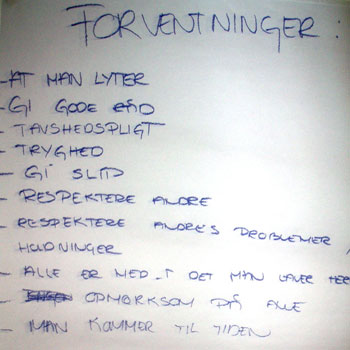 FORVENTNINGER:
- AT MAN LYTER
- GI GODE RÅD
- TAVSHEDSPLIGT
- TRYGHED
- GI SLIP
- RESPEKTERE ANDRE
- RESPEKTERE ANDRE'S PROBLEMER /
HOLDNINGER
- ALLE ER MED I DET MAN LAVER HER
- OPMÆRKSOM PÅ ALLE
- MAN KOMMER TIL TIDEN